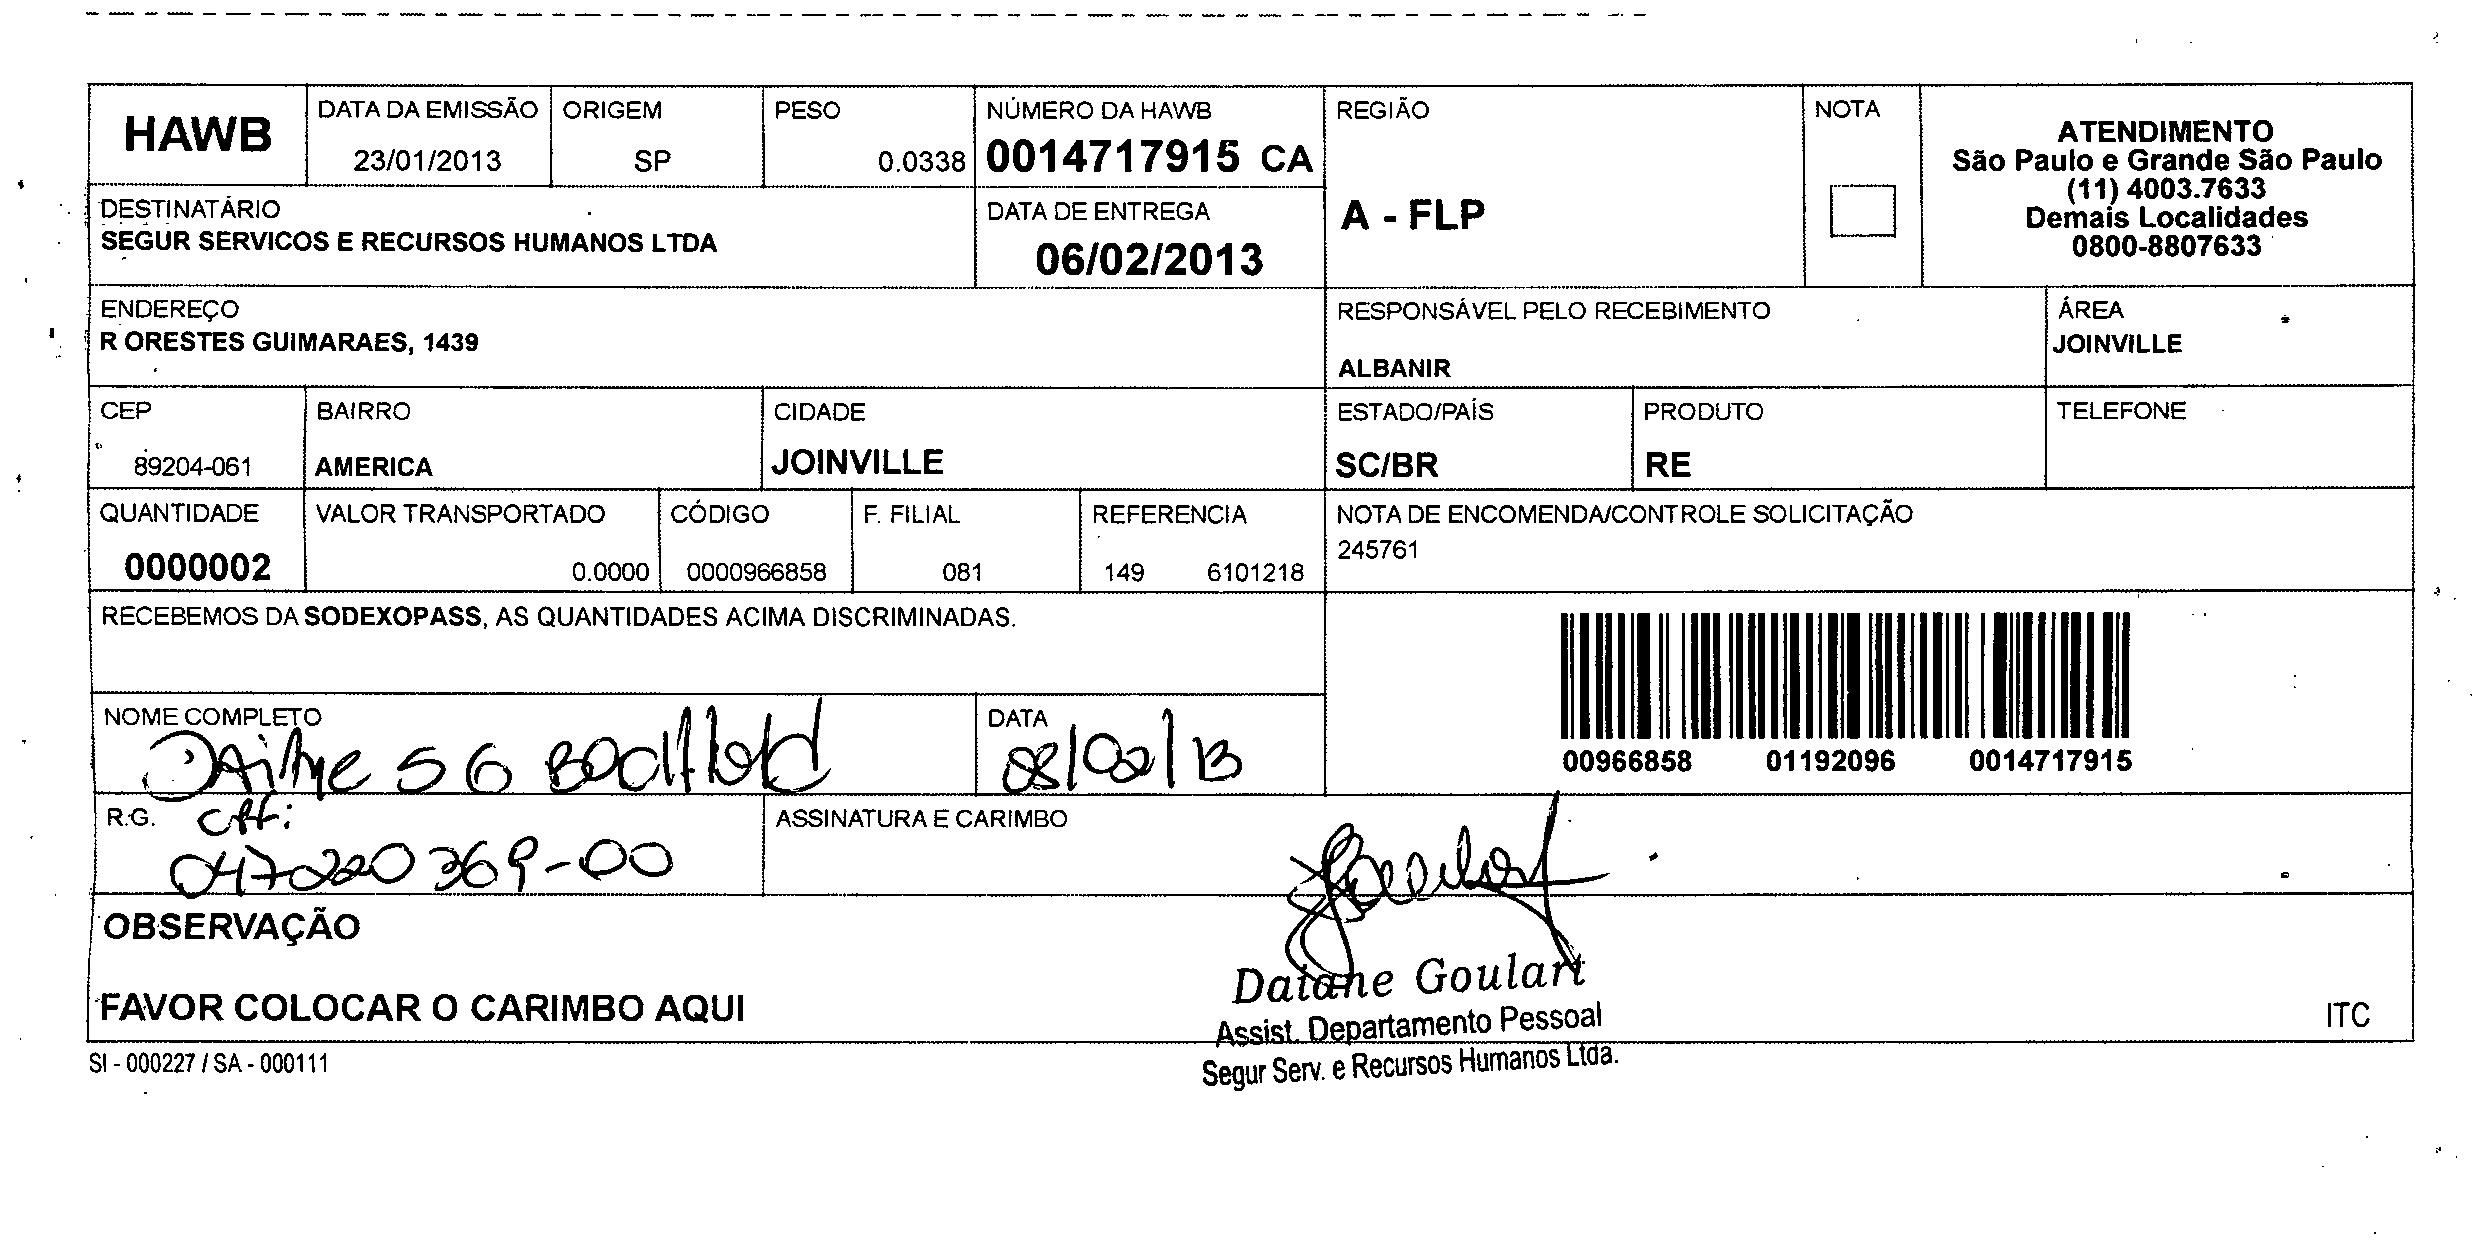 HAWB
DATA DA EMISSÃO
23/01/2013
ORIGEM
SP
PESO
0.0338
NÚMERO DA HAWB
0014717915 CA
REGIÃO
A - FLP
NOTA
ATENDIMENTO
São Paulo e Grande São Paulo
(11) 4003.7633
Demais Localidades
0800-8807633
DESTINATÁRIO
SEGUR SERVICOS E RECURSOS HUMANOS LTDA
DATA DE ENTREGA
06/02/2013
ENDEREÇO
R ORESTES GUIMARAES, 1439
RESPONSÁVEL PELO RECEBIMENTO
ALBANIR
ÁREA
JOINVILLE
CEP
89204-061
BAIRRO
AMERICA
CIDADE
JOINVILLE
ESTADO/PAÍS
SC/BR
PRODUTO
RE
TELEFONE
QUANTIDADE
0000002
VALOR TRANSPORTADO
0.0000
CÓDIGO
0000966858
F. FILIAL
081
REFERENCIA
149 6101218
NOTA DE ENCOMENDA/CONTROLE SOLICITAÇÃO
245761
RECEBEMOS DA SODEXOPASS, AS QUANTIDADES ACIMA DISCRIMINADAS.
00966858 01192096 0014717915
NOME COMPLETO
DATA
08/02/13
R.G.
CPF:
047220369-00
ASSINATURA E CARIMBO
OBSERVAÇÃO
FAVOR COLOCAR O CARIMBO AQUI
Daiane Goulart
Assist. Departamento Pessoal
Segur Serv. e Recursos Humanos Ltda.
ITC
SI - 000227 / SA - 000111